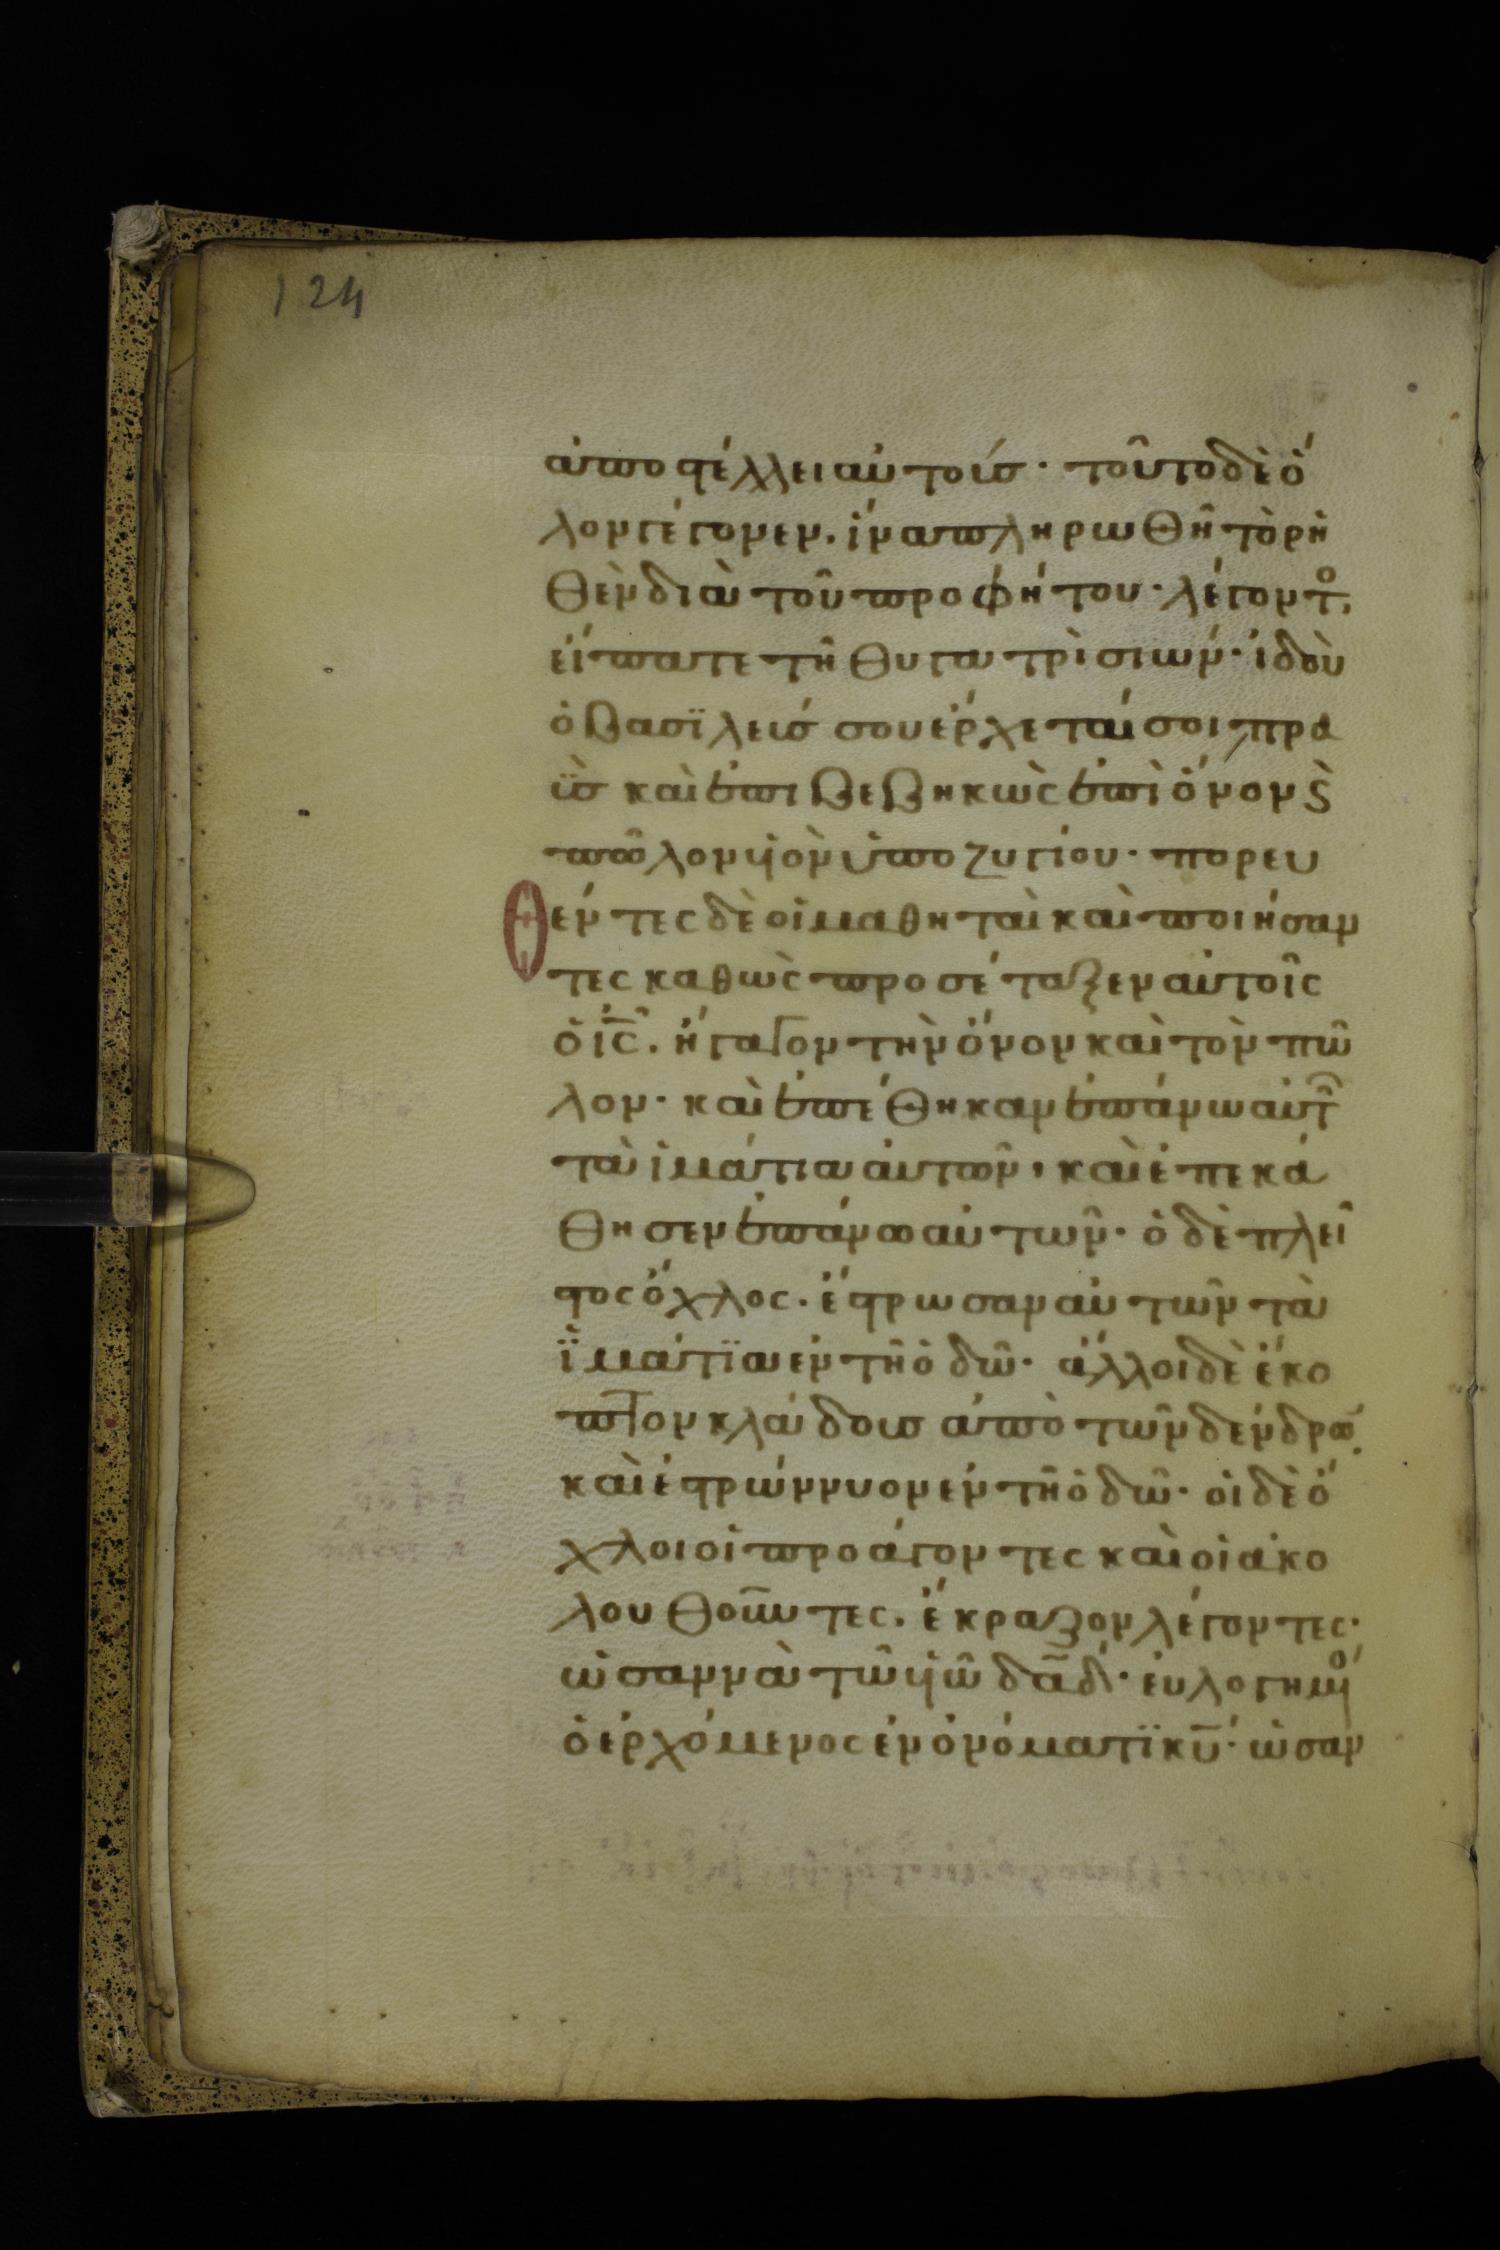 124
ἀποστέλλει αὐτοίσ · τοῦτο δὲ ὅ
λον γέγονεν. ἵνα πληρωθῆ τὸ ρὴ
θὲν διὰ τοῦ προφήτου · λέγοντο̅,
εἴπατε τῆ θυγατρὶ σιών · ἰδοὺ
ὁ βασϊλεισ σου ἔρχεται σοι πρα
ῢσ καὶ ἐπιβεβηκὼς ἐπὶ ὄνον ϛ̀
πῶλον ϋἱὸν ὑποζυγίου · πορευ
Θέντες δὲ οἱ μαθηταὶ καὶ ποιήσαν
τες καθὼς προσέταξεν αὐτοῖς
ὁ ι̅ς̅. ἤγαγον τὴν ὄνον καὶ τὸν πῶ
λον · καὶ ἐπέθηκαν ἐπάνω αὐτ̅
τὰ ἱμάτια αὐτῶν, καὶ ἐπεκά
θησεν ἐπάνω αὐτῶν · ὁ δὲ πλεῖ
στος ὄχλος. ἔστρωσαν αὐτῶν τὰ
ἱ̈μάτϊα ἐν τῆ ὁδῶ · ἄλλοι δὲ ἔκο
πτον κλάδουσ ἀπὸ τῶν δένδρω̅.
καὶ ἐστρώννυον ἐν τῆ ὁδῶ · οἱ δὲ ὄ
χλοι οἱ προάγοντες καὶ οἱ ἀκο
λουθοῦντες. ἔκραζον λέγοντες ·
ὡσαννὰ τῶ ϋἱῶ δα̅δ̅ · εὐλογημο̅
ὁ ἐρχόμενος ἐν ὀνόματϊ κ̅υ̅ · ὡσαν